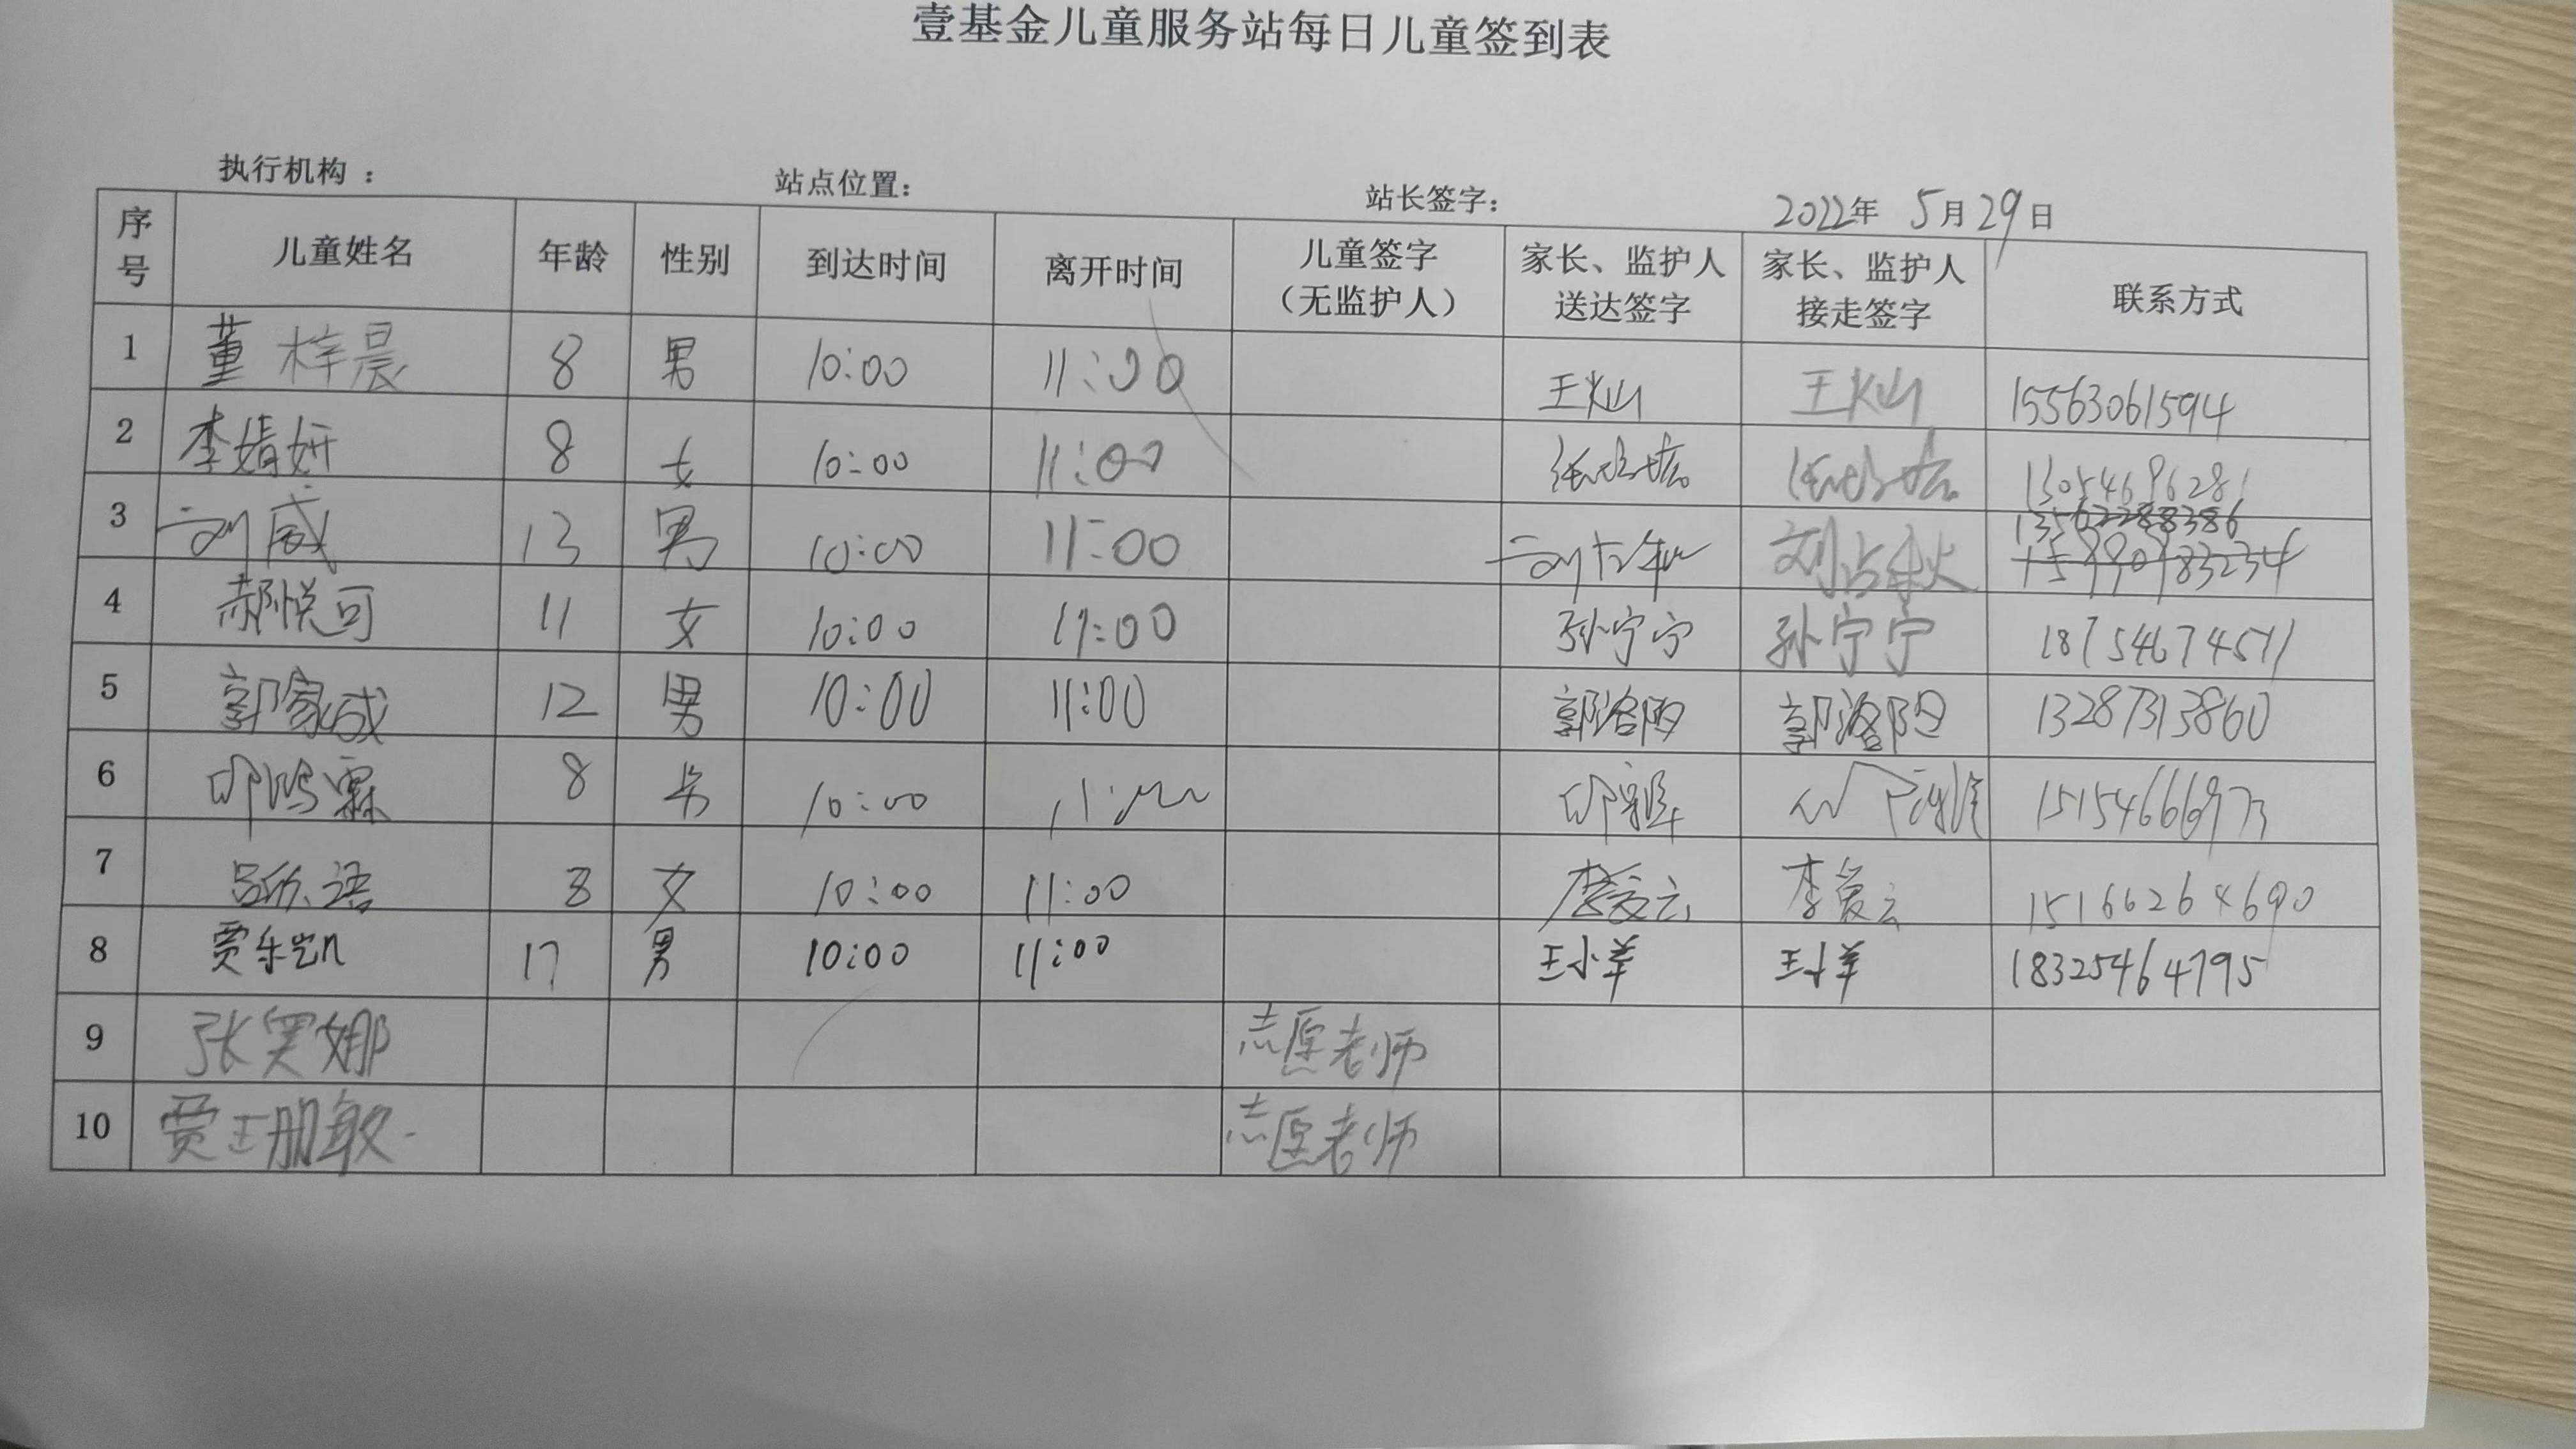 壹基金儿童服务站每日儿童签到表
执行机构： 站点位置： 站长签字： 2022年 5月29日
序号 儿童姓名 年龄 性别 到达时间 离开时间 儿童签字（无监护人） 家长、监护人送达签字 家长、监护人接走签字 联系方式
1 董梓晨 8 男 10:00 11:00 15563061594
2 李婧妍 8 女 10:00 11:00
3 刘威 13 男 10:00 11:00 刘占秋 13562288386
4 郝悦可 11 女 10:00 11:00 孙宁宁 孙宁宁 18754674571
5 郭家成 12 男 10:00 11:00 郭洛阳 郭洛阳 13287313860
6 邱鸿霖 8 男 10:00 15154666973
7 吕欣语 8 女 10:00 11:00 李爱云 李爱云 15166264690
8 贾乐凯 17 男 10:00 11:00 王小羊 王小羊 18325464795
9 张笑娜 志愿老师
10 志愿老师